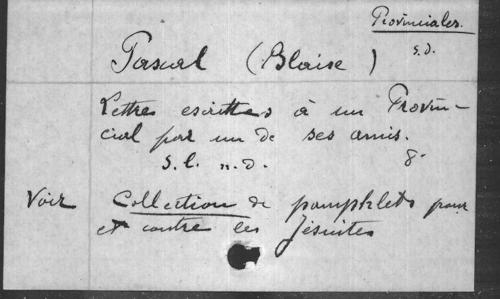 Provinciales.
s.d.
Pascal (Blaise)
Lettres escrittes à un Provin-
cial par un de ses amis.
S. l. n. d. 8°
Voir Collection de pamphlets pour
et contre les Jésuites